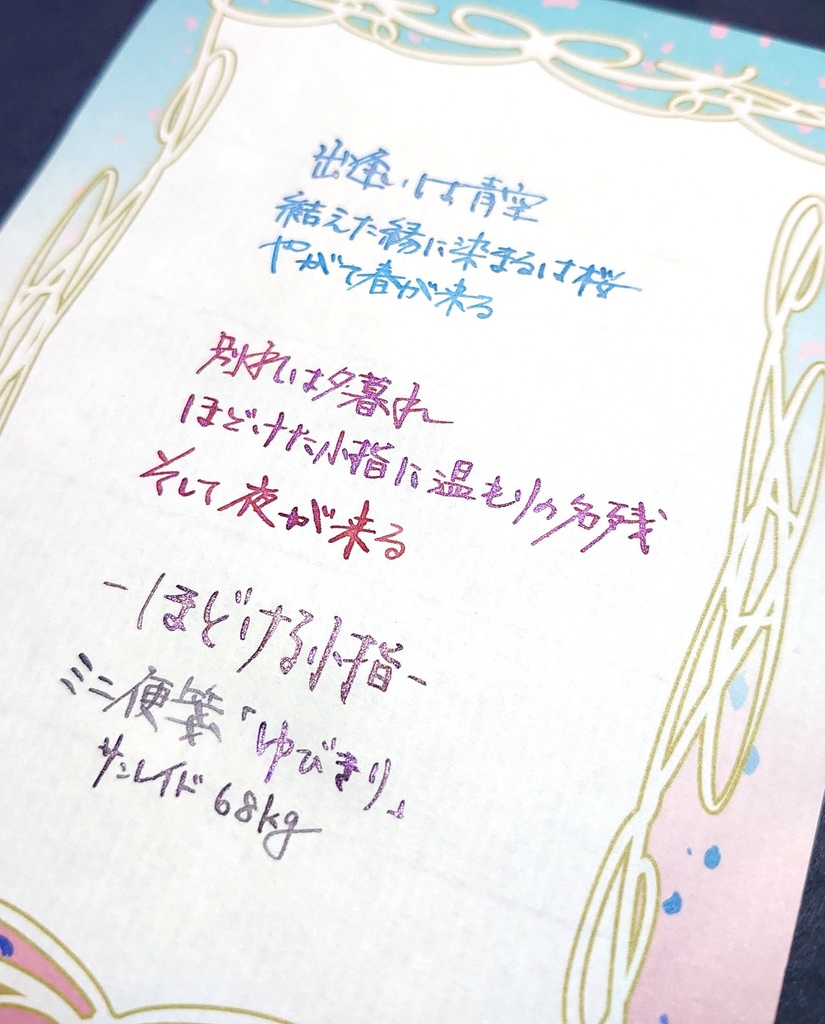 出逢いは青空
結えた縁に染まるは桜
やがて春が来る
別れは夕暮れ
ほどけた小指に温もりの名残
そして夜が来る
-ほどける小指-
ミニ便箋「ゆびきり」
サンレイド 68kg